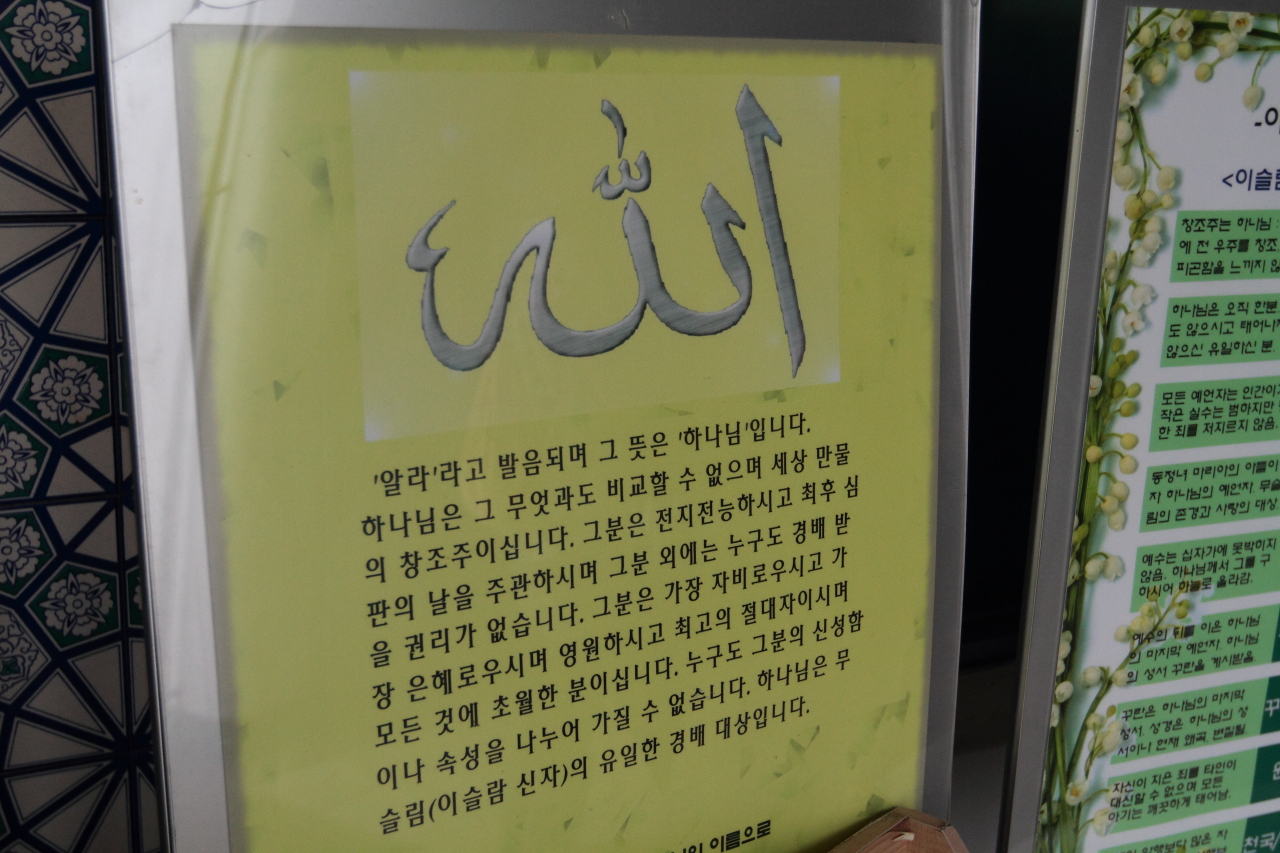 الله
'알라'라고 발음되며 그 뜻은 '하나님'입니다.
하나님은 그 무엇과도 비교할 수 없으며 세상 만물
의 창조주이십니다. 그분은 전지전능하시고 최후 심
판의 날을 주관하시며 그분 외에는 누구도 경배 받
을 권리가 없습니다. 그분은 가장 자비로우시고 가
장 은혜로우시며 영원하시고 최고의 절대자이시며
모든 것에 초월한 분이십니다. 누구도 그분의 신성함
이나 속성을 나누어 가질 수 없습니다. 하나님은 무
슬림(이슬람 신자)의 유일한 경배 대상입니다.
이름으로
<이슬람
창조주는 하나님
에 전 우주를 창조
피곤함을 느끼지 않
하나님은 오직 한분
도 않으시고 태어나지
않으신 유일하신 분.
모든 예언자는 인간이기
작은 실수는 범하지만
한 죄를 저지르지 않음.
동정녀 마리아의 아들이
자 하나님의 예언자. 무슬
림의 존경과 사랑의 대상
예수는 십자가에 못박히지
않음. 하나님께서 그를 구
하시어 하늘로 올라감.
예수의 뒤를 이은 하나님
의 마지막 예언자. 하나님
의 성서 꾸란을 계시받음.
꾸란은 하나님의 마지막
성서. 성경은 하나님의 성
서이나 현재 왜곡, 변질됨.
자신이 지은 죄를 타인이
대신할 수 없으며 모든
아기는 깨끗하게 태어남.
천국